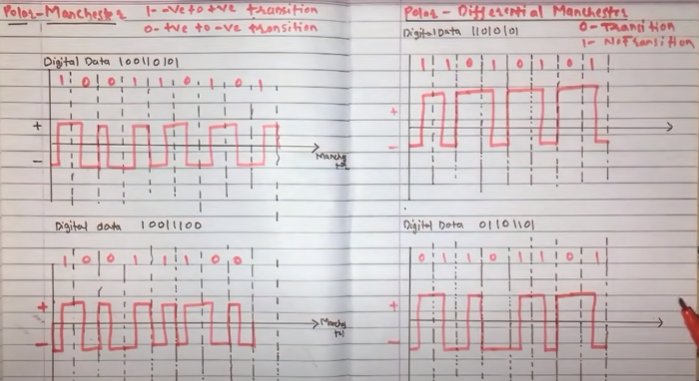 Polar-Manchester 1- -ve to +ve transition
0- +ve to -ve transition
Digital Data 100110101
1 0 0 1 1 0 1 0 1
+
-
Digital data 10011100
1 0 0 1 1 1 0 0
+
-
Polar - Differential Manchester
0- Transition
1- No Transition
Digital Data 11010101
1 1 0 1 0 1 0 1
+
-
Digital Data 01101101
0 1 1 0 1 1 0 1
+
-